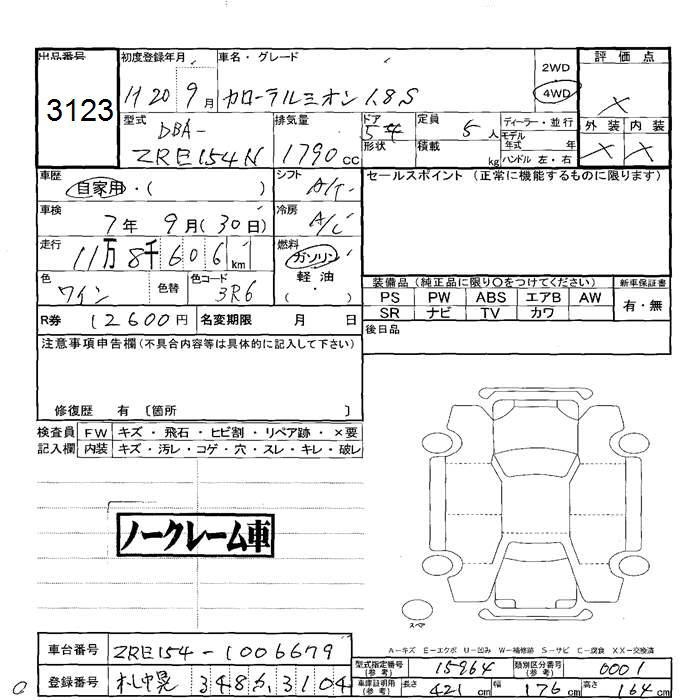 出品番号
3123
初度登録年月
H 20 9月
車名・グレード
カローラルミオン 1.8S
2WD
4WD
評価点
X
外装 内装
X X
型式
DBA-
ZRE154N
排気量
1790 cc
ドア
形状
5
定員
5人
積載
kg
ディーラー・並行
モデル年式 年
ハンドル 左・右
車歴
自家用・( )
シフト
A/T
車検
7年 9月(30日)
冷房
A/C
走行
11万8千606km
燃料
ガソリン
軽油
・( )
色
ワイン
色替
色コード
3R6
セールスポイント (正常に機能するものに限ります)
装備品(純正品に限り〇をつけてください)
新車保証書
PS PW ABS エアB AW
SR ナビ TV カワ
有・無
R券 12600円
名変期限 月 日
後日品
注意事項申告欄(不具合内容等は具体的に記入して下さい)
修復歴 有〔箇所 〕
検査員記入欄
FW キズ・飛石・ヒビ割・リペア跡・×要
内装 キズ・汚レ・コゲ・穴・スレ・キレ・破レ
ノークレーム車
スペア
A-キズ E-エクボ U-凹み W-補修跡 S-サビ C-腐食 XX-交換済
車台番号 ZRE154-1006679
登録番号
348
3104
型式指定番号(参考) 15964
類別区分番号(参考) 0001
車庫証明用(参考) 長さ 421cm 幅 176cm 高さ 164cm